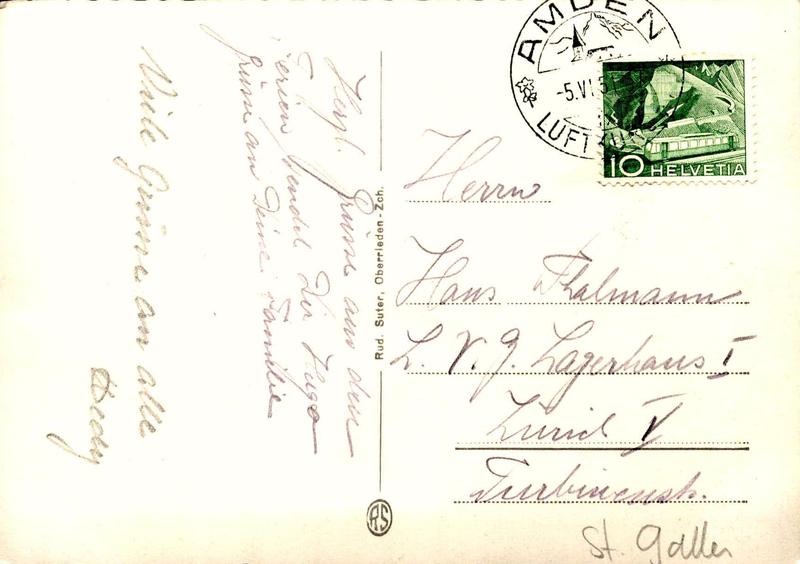 Herzl. Grüsse aus den
Ferien sendet Dir Hugo
Grüsse an Deine Familie
Viele Grüsse an alle
Hedy
Rud. Suter, Oberrieden-Zch.
RS
AMDEN
-5.VI.5
LUFTKUR
10 HELVETIA
Herrn
Hans Thalmann
L. V. Z. Lagerhaus I
Zürich V
Turbinenstr.
St. Gallen